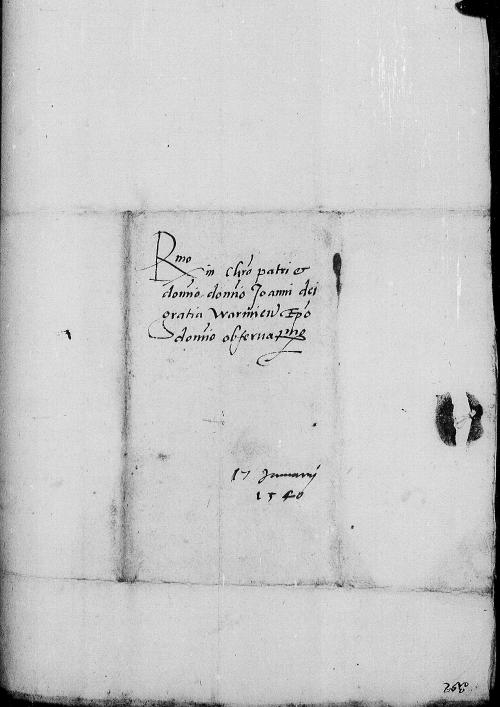 Rmo
in Chro patri et
domino domino Joanni dei
gratia Warmien Epo
domino observatmo
17 Januarij
1540